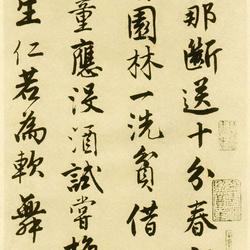 那斷送十分春
園林一洗貧借
童應沒酒試嘗
生仁若為軟舞